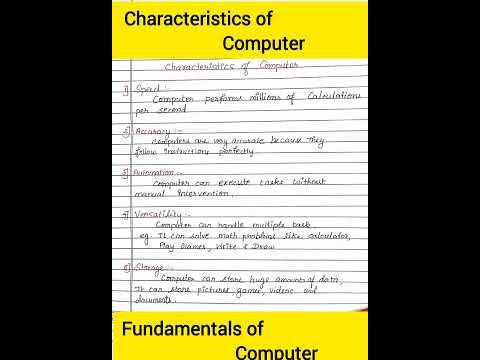 Characteristics of
Computer
Characteristics of Computer
1] Speed :-
Computer performs millions of Calculations
per second
2] Accuracy :-
Computers are very accurate because they
follow instructions perfectly.
3] Automation :-
Computer can execute tasks without
manual intervention.
4] Versatility :-
Computer can handle multiple task
eg. It can solve math problems like calculator,
Play Games, Write & Draw
5] Storage :-
Computer can store huge amounts of data,
It can store pictures, games, videos and
documents.
Fundamentals of
Computer